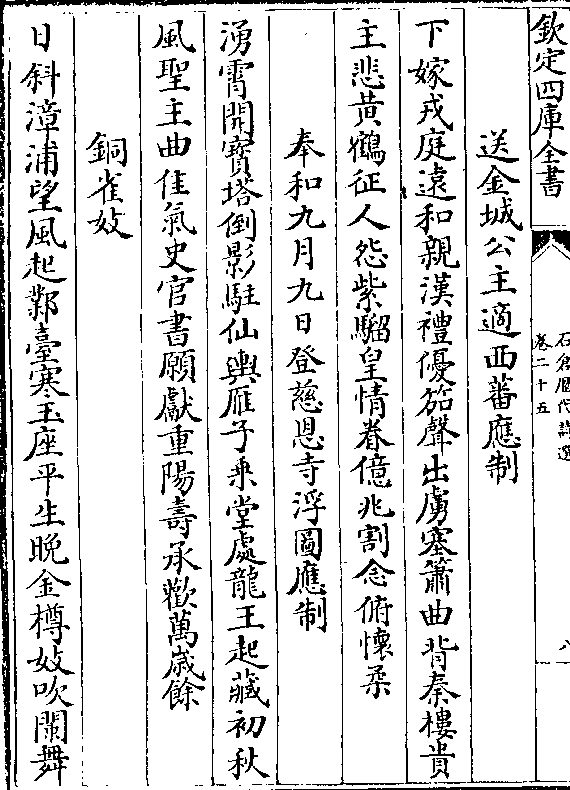 欽定四庫全書
石倉歷代詩選
卷二十五
八
送金城公主適西蕃應制
下嫁戎庭遠和親漢禮優笳聲出虜塞簫曲背秦樓貴
主悲黃鶴征人怨紫騮皇情眷億兆割念俯懷柔
奉和九月九日登慈恩寺浮圖應制
湧霄開寶塔倒影駐仙輿雁子乘堂處龍王起藏初秋
風聖主曲佳氣史官書願獻重陽壽承歡萬歲餘
銅雀妓
日斜漳浦望風起鄴臺寒玉座平生晚金樽妓吹闌舞